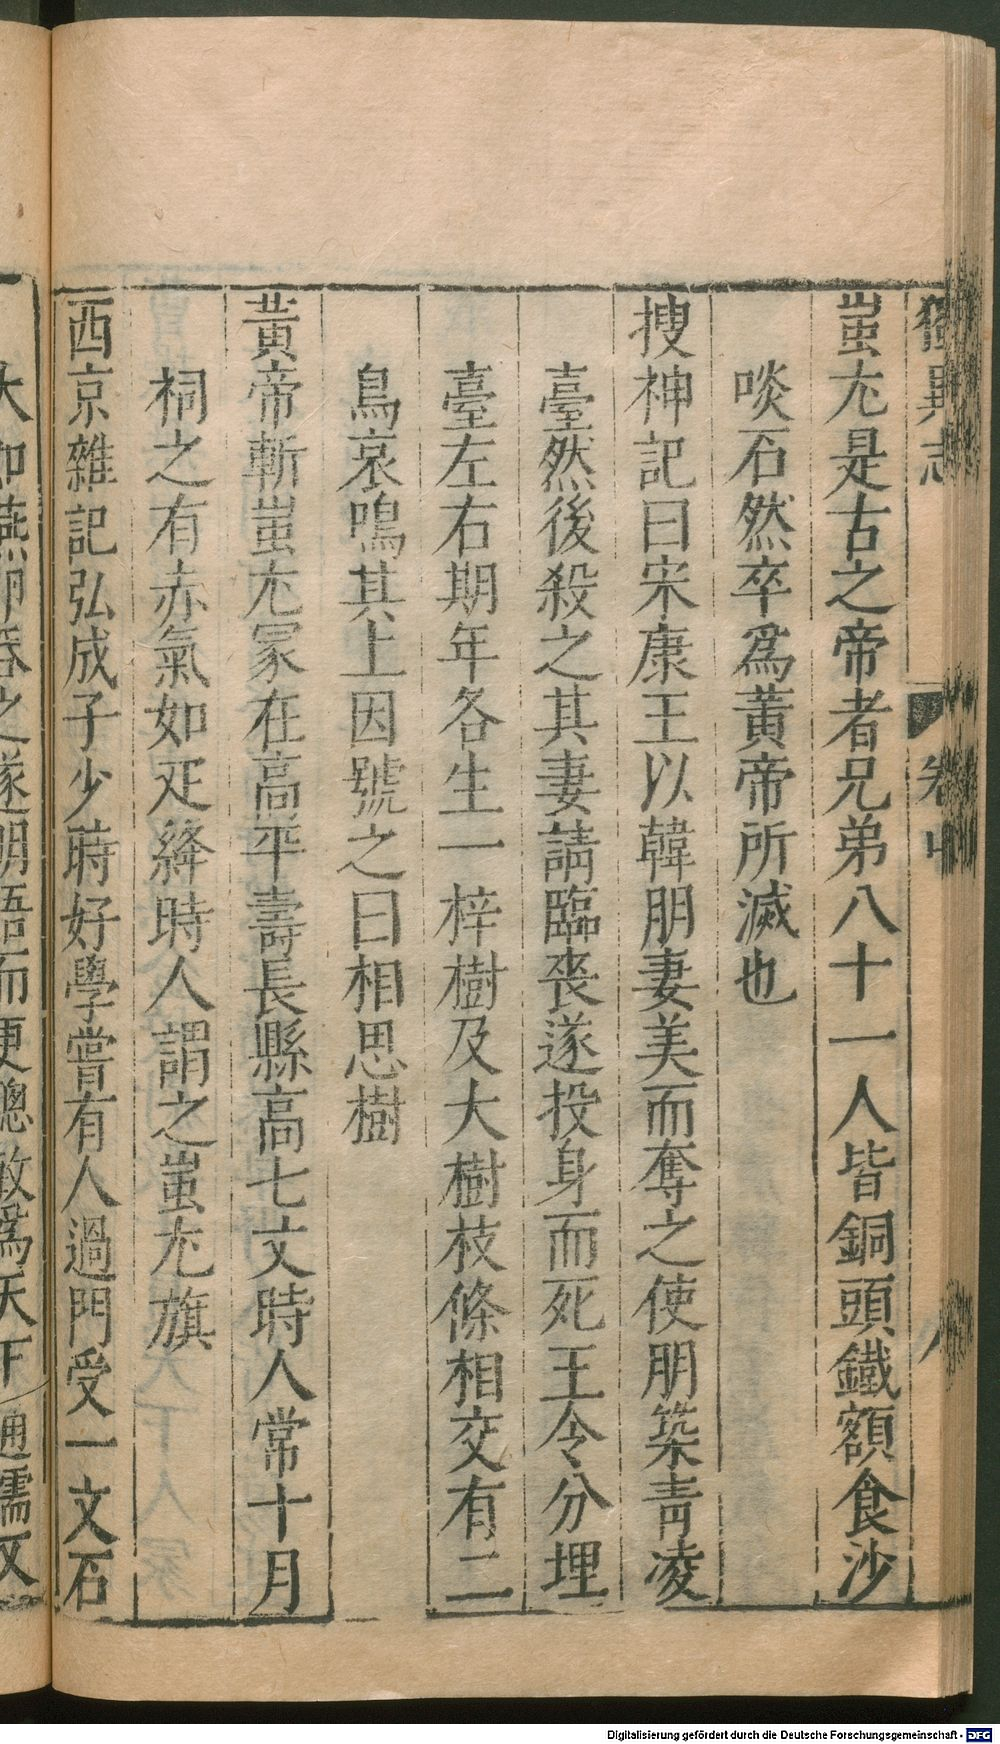 獨異志 卷中
蚩尤是古之帝者兄弟八十一人皆銅頭鐵額食沙
啖石然卒爲黃帝所滅也
搜神記曰宋康王以韓朋妻美而奪之使朋築青凌
臺然後殺之其妻請臨喪遂投身而死王令分埋
臺左右期年各生一梓樹及大樹枝條相交有二
鳥哀鳴其上因號之曰相思樹
黃帝斬蚩尤冢在高平壽長縣高七丈時人常十月
祠之有赤氣如疋絳時人謂之蚩尤旗
西京雜記弘成子少時好學嘗有人過門受一文石
大如燕卵吞之遂明悟而更聰敏爲天下通儒又
Digitalisierung gefördert durch die Deutsche Forschungsgemeinschaft - DFG